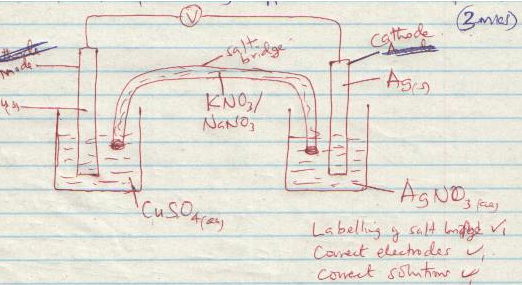 (3 mks)
V
Cathode
salt
bridge
Ag(s)
KNO3/
NaNO3
CuSO4(aq)
AgNO3(aq)
Labelling of salt bridge ✓1
Correct electrodes ✓1
Correct solutions ✓